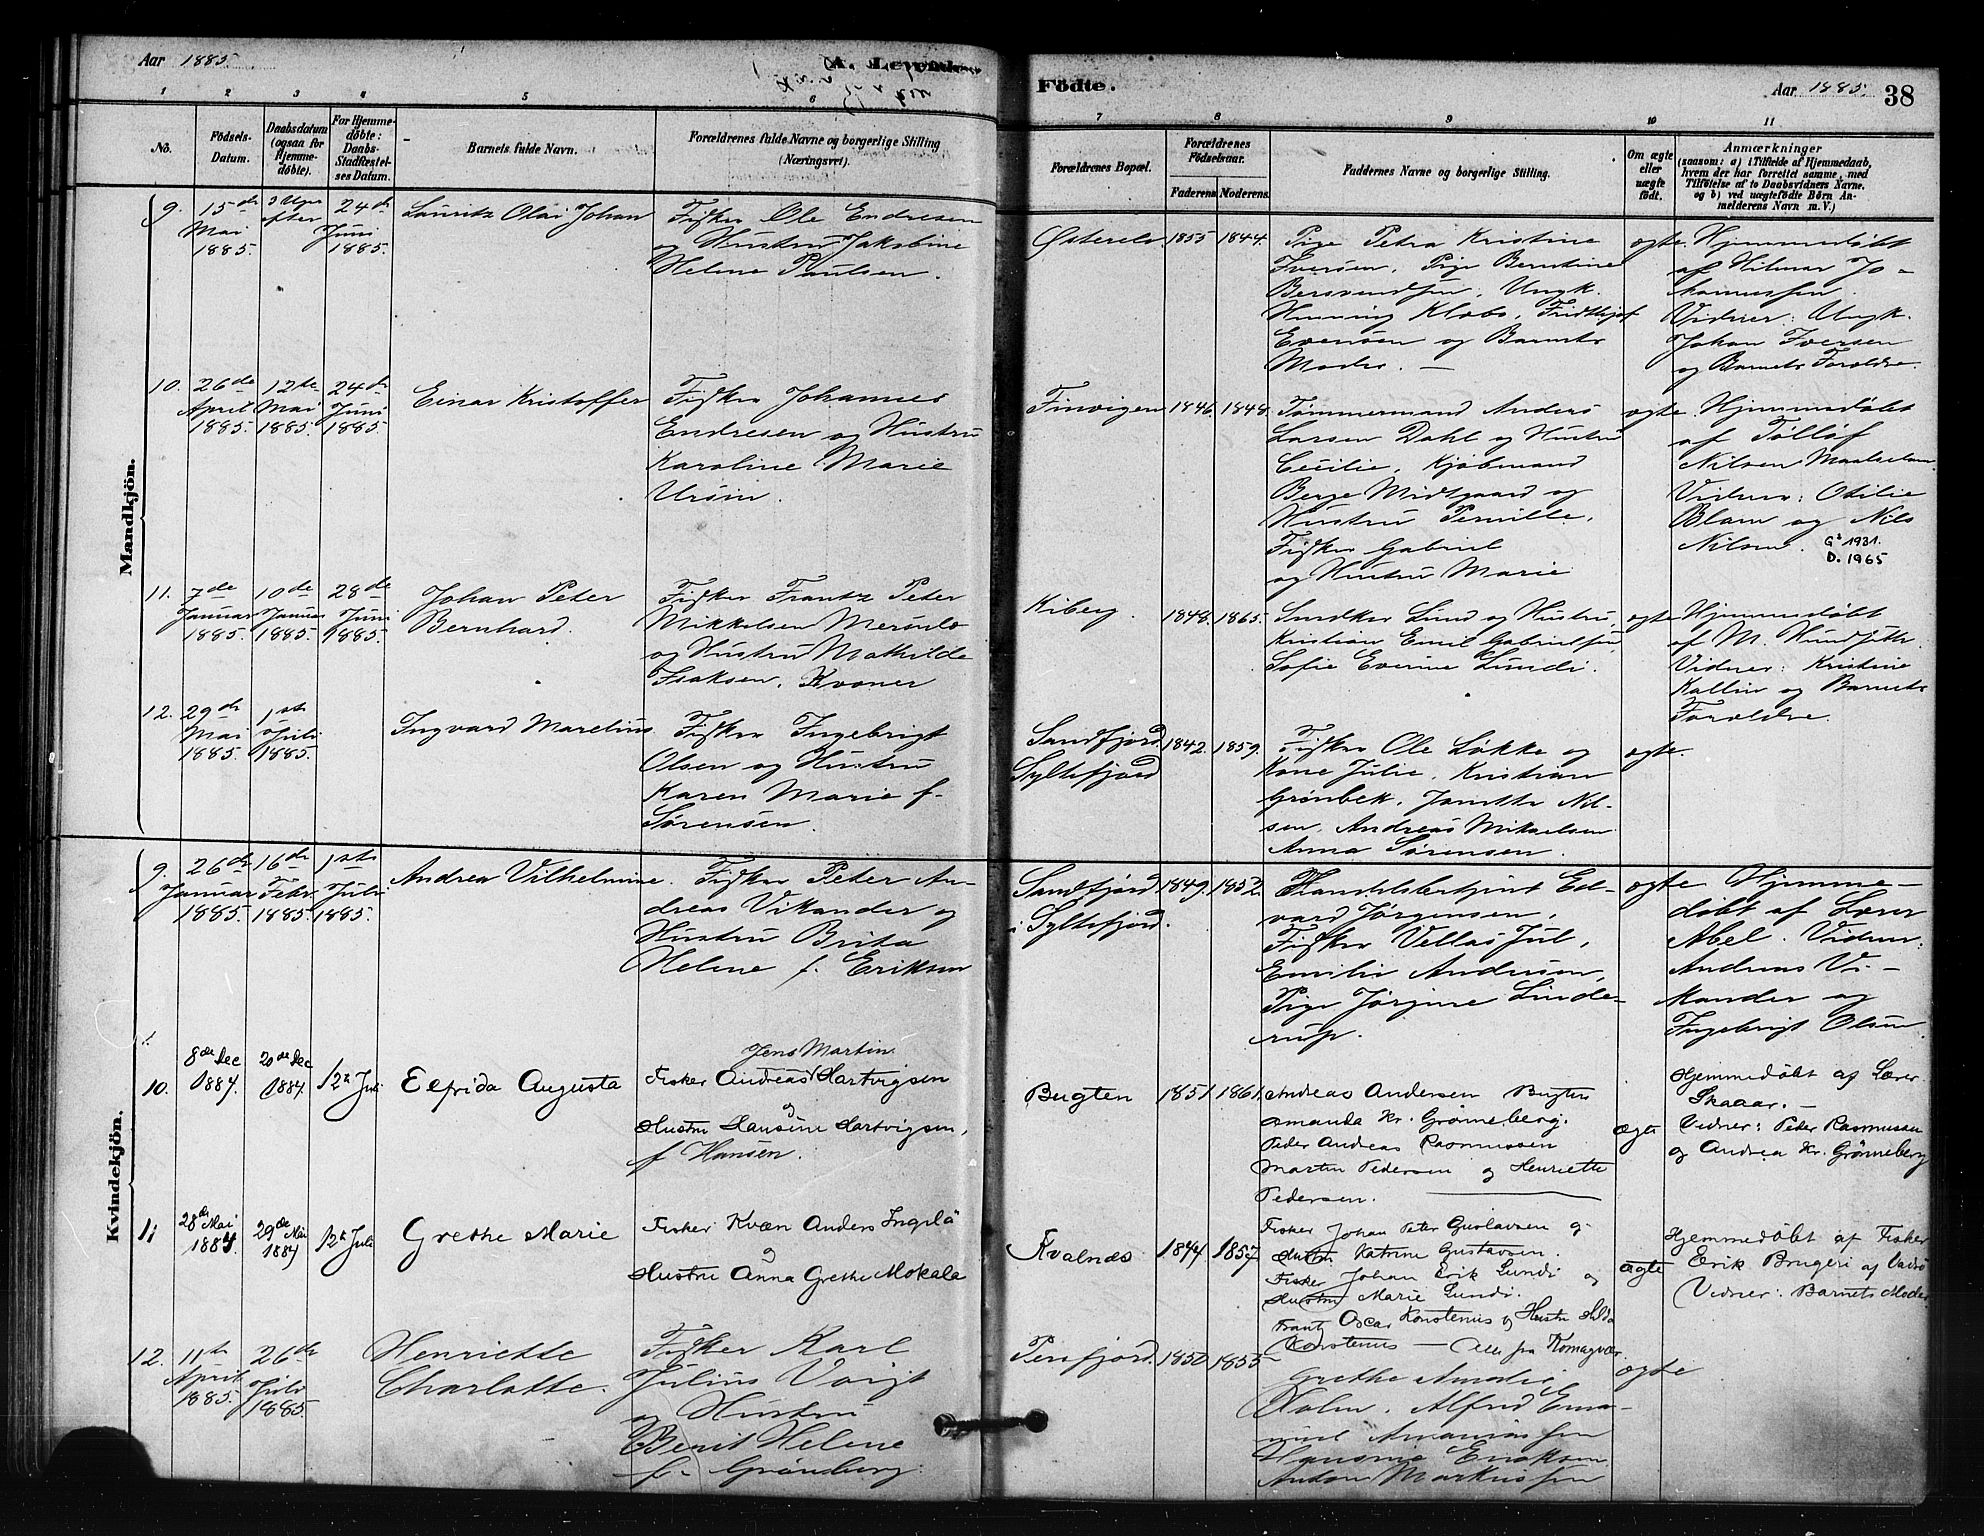 Aar 1885.
A. Levende
Födte.
Aar 1885. 38
1 2 3 4 5 6 7 8 9 10 11
No.
Fødsels-Datum.
Daabsdatum (ogsaa for Hjemme-døbte).
For Hjemme-døbte: Daabs-Stadfæstel-ses Datum.
Barnets fulde Navn.
Forældrenes fulde Navne og borgerlige Stilling (Næringsvei).
Forældrenes Bopæl.
Forældrenes Fødselsaar.
Faderens Moderens.
Faddernes Navne og borgerlige Stilling.
Om ægte eller uægte født.
Anmærkninger
(saasom: a) i Tilfælde af Hjemmedaab, hvem der har forrettet samme, med Tilføielse af to Daabsvidners Navne. og b) ved uægtefødte Børn An-melderens Navn m. V.)
Mandkjön.
9. 15de Mai 1885 24de Juni 1885.
Lauritz Olai Johan
Fisker Ole Endresen
og Hustru Jakobine
Helene Paulsen.
1855 1844.
Pige Petra Kristine
Iversen, Pige Berntine
Henning Klobs, Fridthjof
Evensen og Barnets
Moder. —
ægte.
Hjemmedøbt
af Hilmar Jo-
Vidner: Ungk.
Johan Iversen
og Barnets Forældre.
10. 26de April 1885 12te Mai 1885. 24de Juni 1885.
Einar Kristoffer
Fisker Johannes
Endresen og Hustru
Karoline Marie
Finvigen 1846. 1848.
Tømmermand Anders
Larsen Dahl og Hustru
Cecilie, Kjøbmand
Berge Midtgaard og
Hustru Pernille,
Fisker Gabriel
og Hustru Marie
ægte
Hjemmedøbt
af Tølløf
Nilsen Maalselven.
Vidner: Otilie
Blam og Nils
Nilsen. G³ 1931.
D. 1965
11. 7de Januar 1885. 10de Januar 1885. 28de Juni 1885.
Johan Peter
Bernhard.
Fisker Frantz Peter
Mikkelsen
og Hustru Mathilde
Isaksen, Kvæner
Kiberg 1848. 1865.
Snedker Lund og Hustru,
Kristian Emil Gabrielsen,
Sofie Evenine Lundi.
ægte
Hjemmedøbt
Vidner: Kristine
Kallin og Barnets
Forældre.
12. 29de Mai 1885 1ste Juli 1885.
Ingvard Marelius
Fisker Ingebrigt
Olsen og Hustru
Karen Marie f.
Sørensen.
Sandfjord
Syltefjord 1842. 1859.
Fisker Ole Løkke og
Kone Julie, Kristian
Grønbek, Janetta Nil-
sen, Andreas Mikaelsen
Anna Sørensen.
ægte.
Kvindekjön.
9. 26de Januar 1885. 16de Febr 1885. 1ste Juli 1885.
Andrea Vilhelmine.
Fisker Peter An-
dreas Vikander og
Hustru Brita
Helene f. Eriksen
Sandfjord
i Syltefjord. 1849. 1852.
Handelsbetjent Ed-
vard Jørgensen,
Fisker Vellas Jul,
Emilie Andersen,
Pige Jørgine Linde-
rup.
ægte
Hjemme-
døbt af Lærer
Abel. Vidner:
Andreas Vi-
kander og
Ingebrigt Olsen
10. 8de Dec 1884. 20de Dec 1884. 12te Juli
Elfrida Augusta
Jens Martin
Fisker Andreas Hartvigsen
og
Hustru Hansine Hartvigsen,
f Hansen.
Bugten 1851 1861.
Andreas Andersen Bugten
Amanda Kr. Grønneberg.
Peder Andreas Rasmussen
Martin Pedersen og Henriette
Pedersen.
ægte
Hjemmedøbt af Lærer
Skaaar. —
Vidner: Peder Rasmussen
og Andrea Kr. Grønneberg
11 28de Mai 1884. 29de Mai 1884 12te Juli
Grethe Marie
Fisker Kvæn Anders Ingelä
og
Hustru Anna Grethe Mokala
Kvalnæs 1844. 1857.
Fisker Johan Peter Gustavsen og
Hustru Katrine Gustavsen.
Fisker Johan Erik Lundi og
Hustru Marie Lundi.
Oscar Konstenius og Hustru Hilda
Konstenius — Alle fra Komagvær.
ægte
Hjemmedøbt af Fisker
Erik Brugeri af Vadsö
Vidner: Barnets Moder
12. 11te April 1885. 26de Juli 1885.
Henriette
Charlotte.
Fisker Karl
Julius Voigt
og Hustru
Berit Helene
f. Grønberg.
Persfjord. 1850. 1855
Grethe Amalie
Holm, Alfred Ema-
nuel Ananiassen
Hansine Eriksen
Anton Markussen
ægte